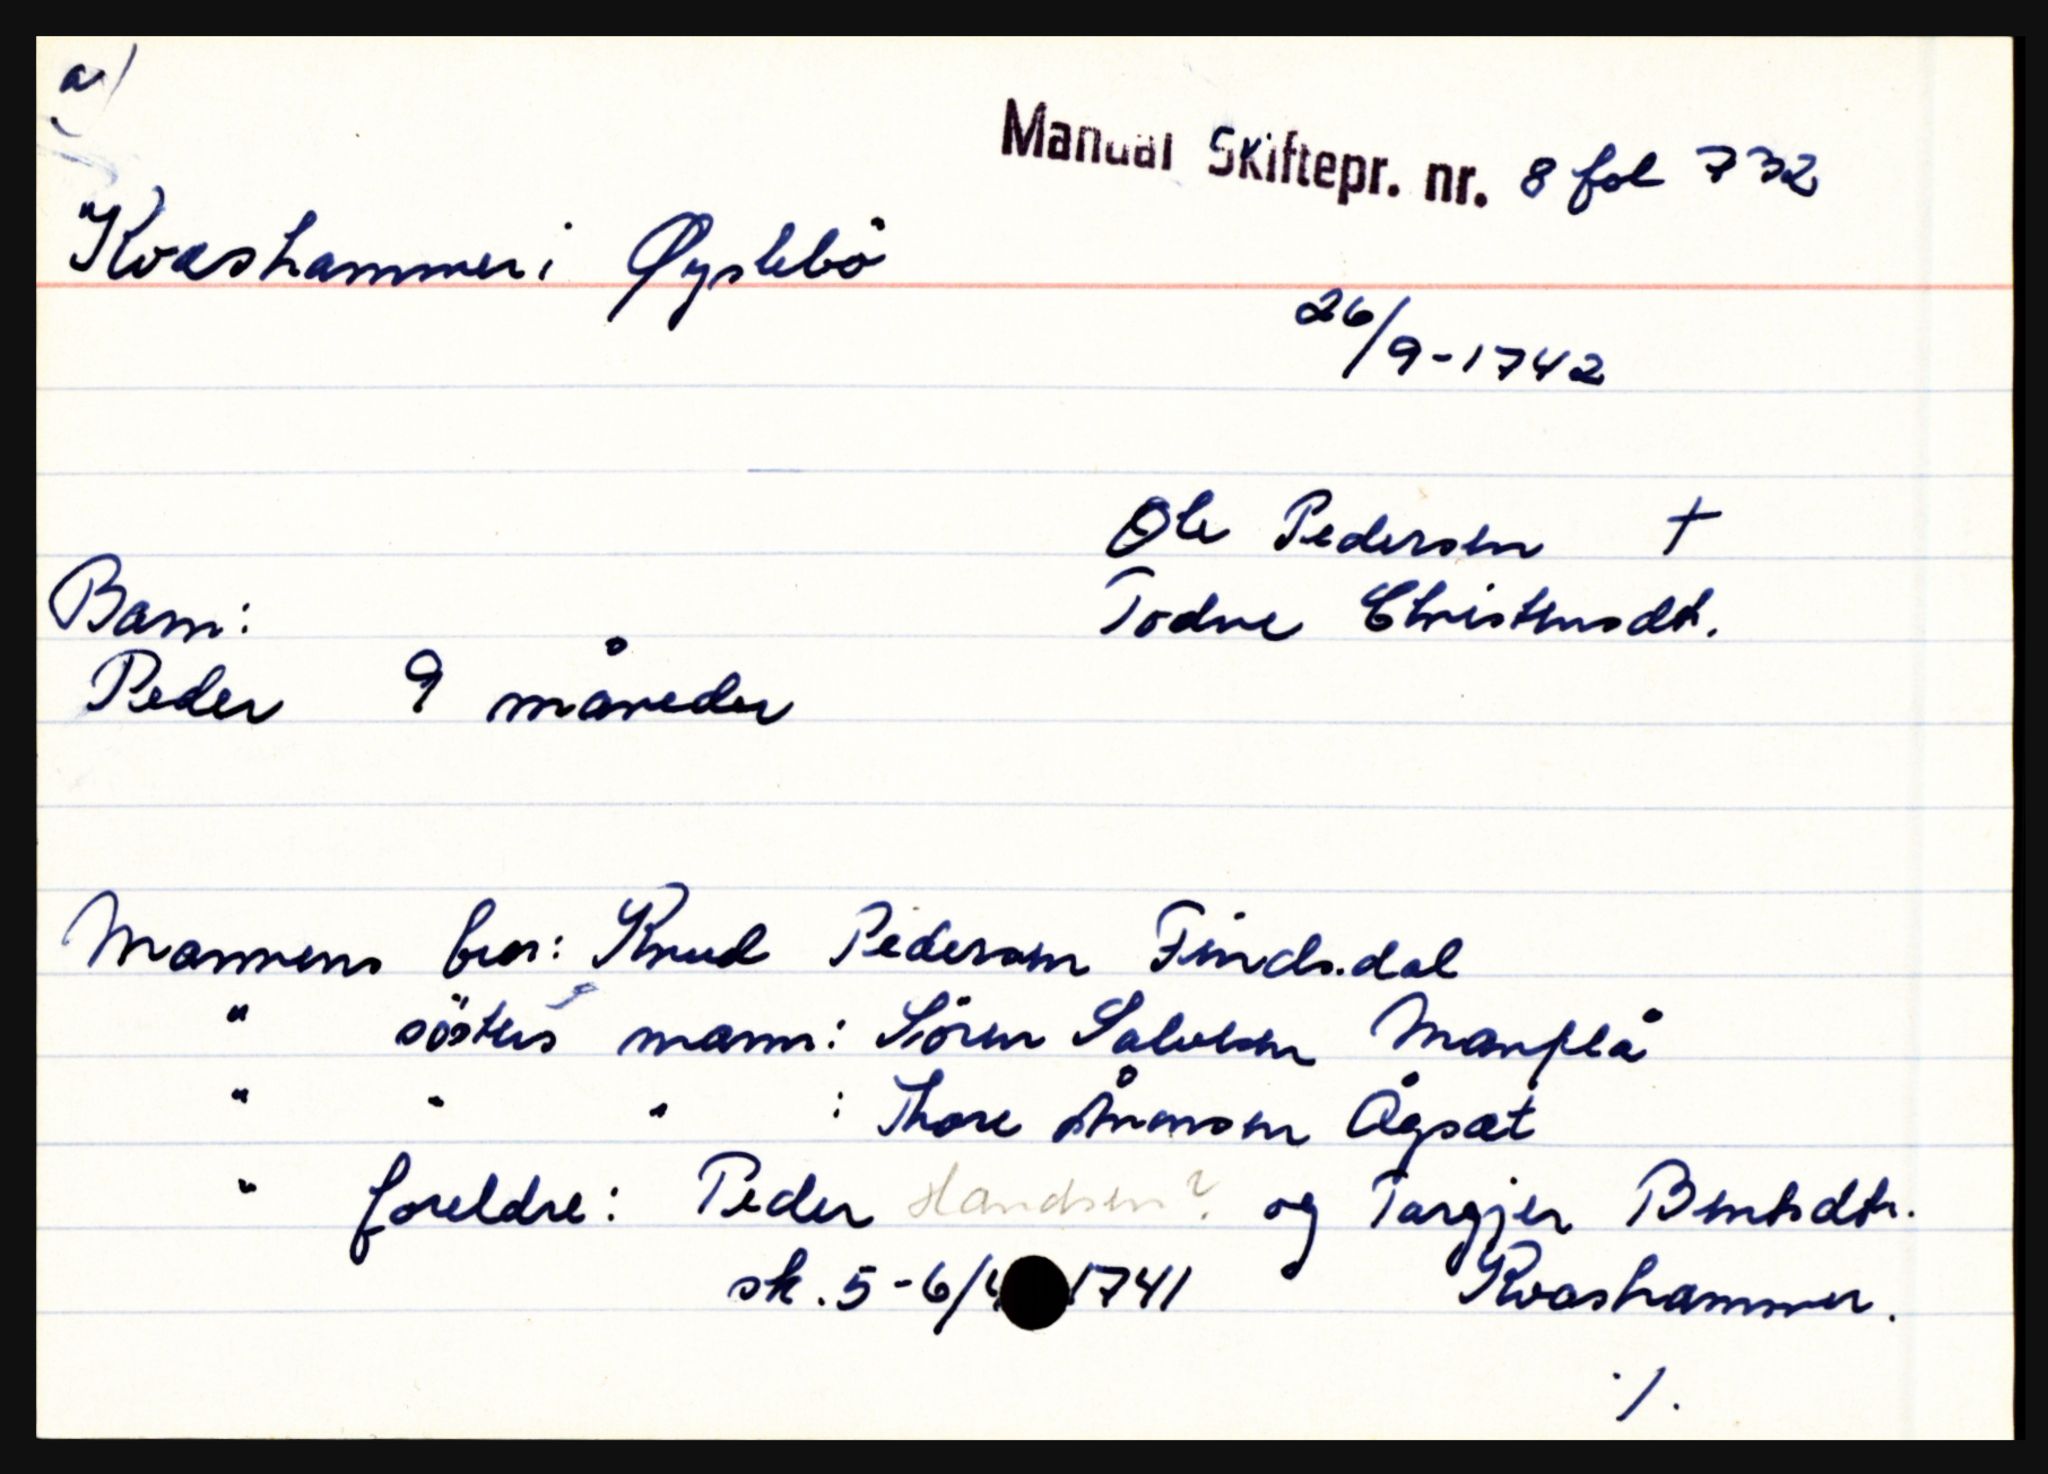 a)
Manual Skiftepr. nr. 8 fol 732
Kvashammer i Øyslebö
26/9-1742
Ole Pedersen †
Todne Christensdt.
Barn:
Peder 9 måneder
Mannens bror: Knud Pedersen Findsdal
" sösters mann: Sören Salvesen Manflå
" " " : Thore Ånensen Ågsæt
" foreldre: Peder Handsen? og Targjer Bentsdtr.
sk. 5-6/4 1741 Kvashammer.
./.